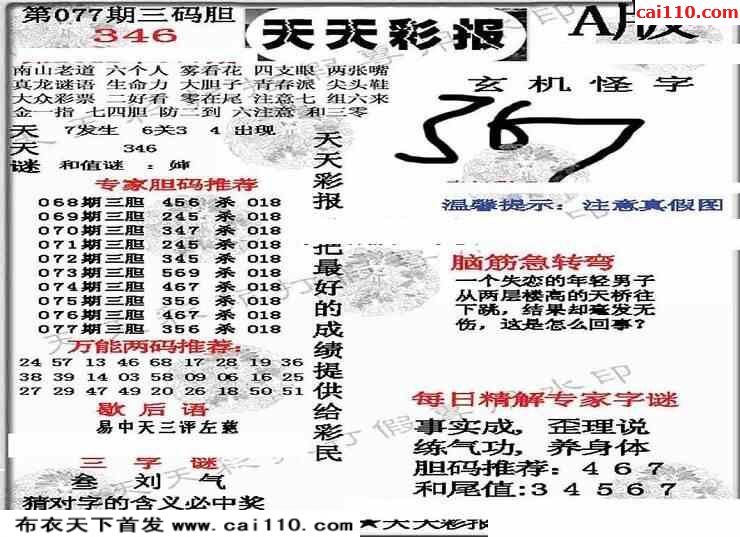 第077期三码胆
346
天天彩报
A版
cai110.com
南山老道 六个人 雾看花 四支眼 两张嘴
真龙谜语 生命力 大胆子 青春派 尖头鞋
大众彩票 二好看 零在尾 注意七 组六来
金一指 七四胆 防二到 六注意 和三零
天 7发生 6关3 4出现
天 346
谜 和值谜 :
专家胆码推荐
068期三胆 456 杀 018
069期三胆 245 杀 018
070期三胆 347 杀 018
071期三胆 245 杀 018
072期三胆 345 杀 018
073期三胆 569 杀 018
074期三胆 467 杀 018
075期三胆 356 杀 018
076期三胆 467 杀 018
077期三胆 356 杀 018
万能两码推荐:
24 57 13 46 68 17 28 19 36
38 39 14 03 58 09 06 16 25
27 29 47 49 20 26 18 50 51
歇后语
易中天三评左慈
三字谜
叁 刘 气
猜对字的含义必中奖
天天彩报
把最好的成绩提供给彩民
玄机怪字
367
温馨提示: 注意真假图
脑筋急转弯
一个失恋的年轻男子
从两层楼高的天桥往
下跳，结果却毫发无
伤，这是怎么回事?
每日精解专家字谜
事实成，歪理说
练气功，养身体
胆码推荐: 4 6 7
和尾值:3 4 5 6 7
布衣天下首发 www.cai110.com